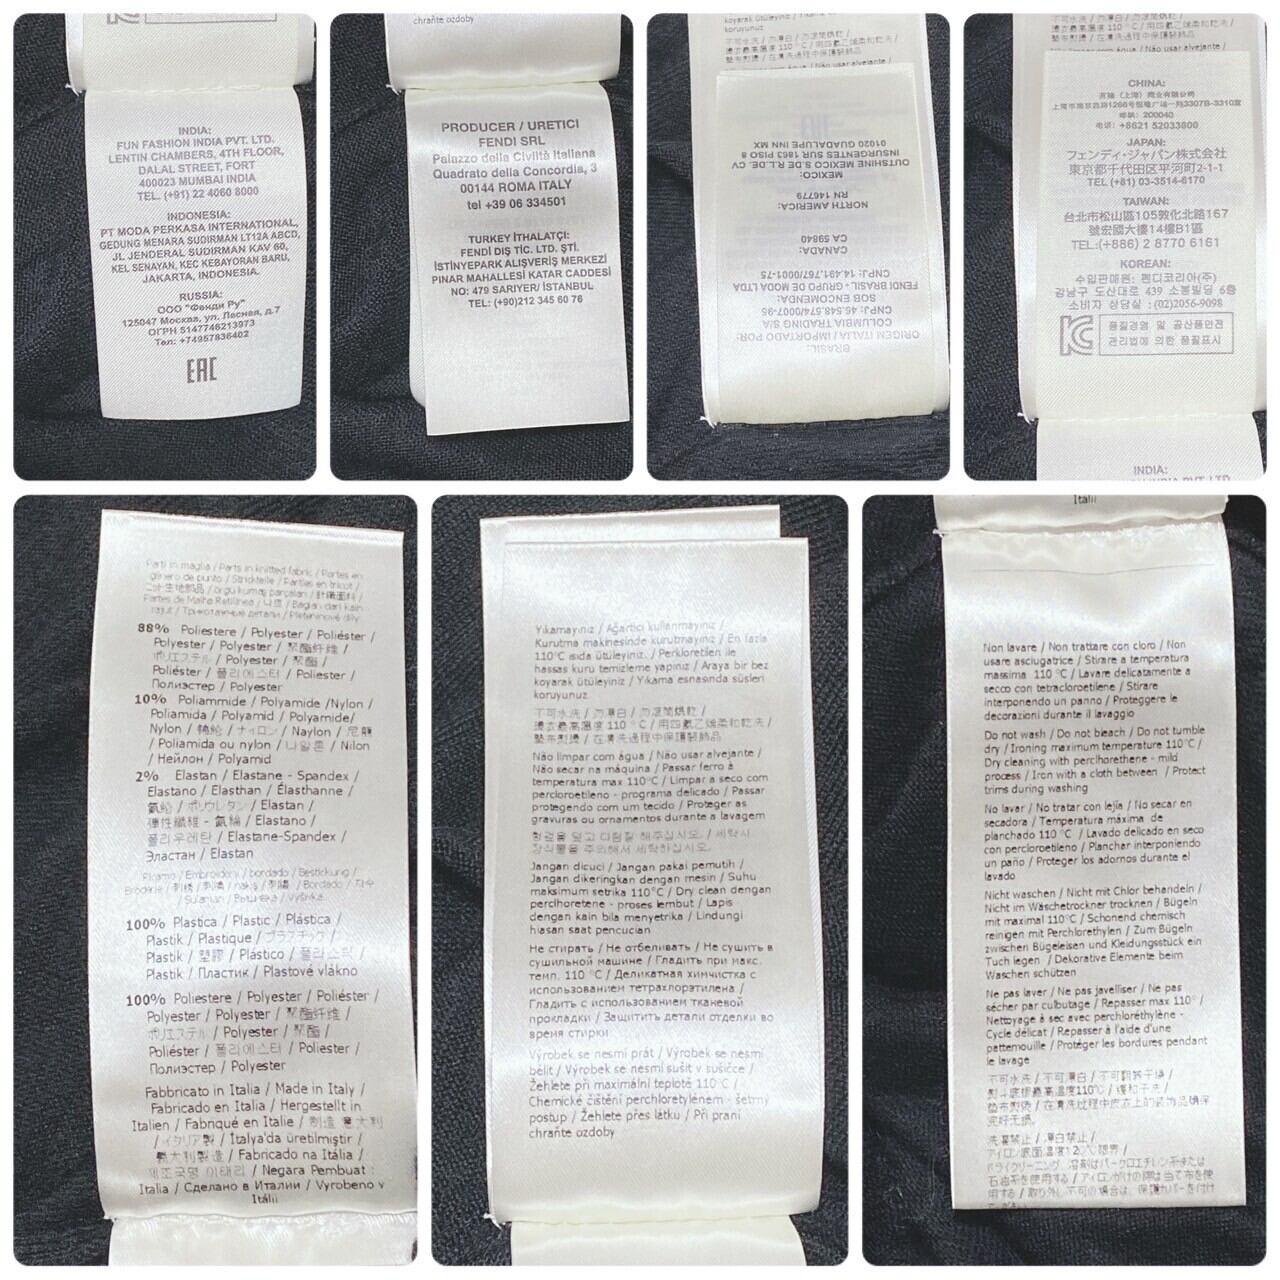 INDIA:
FUN FASHION INDIA PVT. LTD.
LENTIN CHAMBERS, 4TH FLOOR,
DALAL STREET, FORT
400023 MUMBAI INDIA
TEL. (+91) 22 4060 8000
INDONESIA:
PT MODA PERKASA INTERNATIONAL,
GEDUNG MENARA SUDIRMAN LT12A ABCD,
JL JENDERAL SUDIRMAN KAV 60,
KEL SENAYAN, KEC KEBAYORAN BARU,
JAKARTA, INDONESIA.
RUSSIA:
ООО "Фенди Ру"
125047 Москва, ул. Лесная, д.7
ОГРН 5147746213973
Тел: +74957836402
EAC
chraňte ozdoby
PRODUCER / URETICI
FENDI SRL
Palazzo della Civiltà Italiana
Quadrato della Concordia, 3
00144 ROMA ITALY
tel +39 06 334501
TURKEY İTHALATÇI:
FENDI DIŞ TİC. LTD. ŞTİ.
İSTİNYEPARK ALIŞVERİŞ MERKEZİ
PINAR MAHALLESİ KATAR CADDESİ
NO: 479 SARIYER/ İSTANBUL
TEL: (+90)212 345 60 76
koyarak ütüleyiniz / Yıkama esnasında süsleri
koruyunuz
不可水洗 / 勿漂白 / 勿滾筒烘乾 /
燙衣最高溫度 110 °C / 用四氯乙烯柔和乾洗 /
墊布熨燙 / 在清洗過程中保護裝飾品
BRASIL:
ORIGEM ITALIA / IMPORTADO POR:
COLUMBIA TRADING S/A
CNPJ: 46.548.574/0007-95
SOB ENCOMENDA:
FENDI BRASIL - GRUPO DE MODA LTDA
CNPJ: 14.491.767/0001-75
CANADA:
CA 59840
NORTH AMERICA:
RN 146779
MEXICO:
OUTSHINE MEXICO S.DE R.L.DE. CV
INSURGENTES SUR 1863 PISO 8
01020 GUADALUPE INN MX
CHINA:
上海市南京西路1266号恒隆广场一3307B-3310室
邮编: 200040
电话: +8621 52033800
JAPAN:
フェンディ・ジャパン株式会社
東京都千代田区平河町2-1-1
TEL (+81) 03-3514-6170
TAIWAN:
台北市松山區105敦化北路167
號宏國大樓14樓B1區
TEL:(+886) 2 8770 6161
KOREAN:
수입판매원: 펜디코리아(주)
강남구 도산대로 439 소봉빌딩 6층
소비자 상담실 : (02)2056-9098
품질경영 및 공산품안전
관리법에 의한 품질표시
INDIA:
Parti in maglia / Parts in knitted fabric / Partes en
género de punto / Strickteile / Parties en tricot /
ニット生地部品 / örgü kumaş parçaları / 針織面料 /
Partes de Malha Retilínea / 니트 / Bagian dari kain
rajut / Трикотажные детали / Pleteninové díly
88% Poliestere / Polyester / Poliéster /
Polyester / Polyester / 聚酯纤维 /
ポリエステル / Polyester / 聚酯 /
Poliéster / 폴리에스터 / Poliester /
Полиэстер / Polyester
10% Poliammide / Polyamide /Nylon /
Poliamida / Polyamid / Polyamide/
Nylon / 锦纶 / ナイロン / Naylon / 尼龍
/ Poliamida ou nylon / 나일론 / Nilon
/ Нейлон / Polyamid
2% Elastan / Elastane - Spandex /
Elastano / Elasthan / Élasthanne /
氨纶 / ポリウレタン / Elastan /
彈性纖維 - 氨綸 / Elastano /
폴리우레탄 / Elastane-Spandex /
Эластан / Elastan
Ricamo / Embroidery / bordado / Bestickung /
Broderie / 刺绣 / 刺繍 / nakış / 刺繡 / Bordado / 자수
/ Sulaman / Вышивка / Výšivka
100% Plastica / Plastic / Plástica /
Plastik / Plastique / プラスチック /
Plastik / 塑膠 / Plástico / 폴리스터 /
Plastik / Пластик / Plastové vlákno
100% Poliestere / Polyester / Poliéster /
Polyester / Polyester / 聚酯纤维 /
ポリエステル / Polyester / 聚酯 /
Poliéster / 폴리에스터 / Poliester /
Полиэстер / Polyester
Fabbricato in Italia / Made in Italy /
Fabricado en Italia / Hergestellt in
Italien / Fabriqué en Italie / 制造 意大利
/ イタリア製 / İtalya'da üretilmiştir /
義大利製造 / Fabricado na Itália /
제조국명 이태리 / Negara Pembuat :
Italia / Сделано в Италии / Vyrobeno v
Itálii
Yıkamayınız / Ağartici kullanmayınız /
Kurutma makinesinde kurutmayınız / En fazla
110°C ısıda ütüleyiniz. / Perkloretilen ile
hassas kuru temizleme yapınız / Araya bir bez
koyarak ütüleyiniz / Yıkama esnasında süsleri
koruyunuz
不可水洗 / 勿漂白 / 勿滾筒烘乾 /
燙衣最高溫度 110 °C / 用四氯乙烯柔和乾洗 /
墊布熨燙 / 在清洗過程中保護裝飾品
Não limpar com água / Não usar alvejante /
Não secar na máquina / Passar ferro à
temperatura max 110°C / Limpar a seco com
percloroetileno - programa delicado / Passar
protegendo com um tecido / Proteger as
gravuras ou ornamentos durante a lavagem
헝겊을 덮고 다림질 해주십시오. / 세탁시
장식물을 주의해서 세탁하십시오.
Jangan dicuci / Jangan pakai pemutih /
Jangan dikeringkan dengan mesin / Suhu
maksimum setrika 110°C / Dry clean dengan
perclhoretene - proses lembut / Lapis
dengan kain bila menyetrika / Lindungi
hiasan saat pencucian
Не стирать / Не отбеливать / Не сушить в
сушильной машине / Гладить при макс.
темп. 110 °C / Деликатная химчистка с
использованием тетрахлорэтилена /
Гладить с использованием тканевой
прокладки / Защитить детали отделки во
время стирки
Výrobek se nesmí prát / Výrobek se nesmí
bělit / Výrobek se nesmí sušit v sušičce /
Žehlete při maximální teplotě 110°C /
Chemické čištění perchloretylénem - šetrný
postup / Žehlete přes látku / Při praní
chraňte ozdoby
Itálii
Non lavare / Non trattare con cloro / Non
usare asciugatrice / Stirare a temperatura
massima 110 °C / Lavare delicatamente a
secco con tetracloroetilene / Stirare
interponendo un panno / Proteggere le
decorazioni durante il lavaggio
Do not wash / Do not bleach / Do not tumble
dry / Ironing maximum temperature 110°C /
Dry cleaning with perclhorethene - mild
process / Iron with a cloth between / Protect
trims during washing
No lavar / No tratar con lejía / No secar en
secadora / Temperatura máxima de
planchado 110 °C / Lavado delicado en seco
con percloroetileno / Planchar interponiendo
un paño / Proteger los adornos durante el
lavado
Nicht waschen / Nicht mit Chlor behandeln /
Nicht im Wäschetrockner trocknen / Bügeln
mit maximal 110°C / Schonend chemisch
reinigen mit Perchlorethylen / Zum Bügeln
zwischen Bügeleisen und Kleidungsstück ein
Tuch legen / Dekorative Elemente beim
Waschen schützen
Ne pas laver / Ne pas javelliser / Ne pas
sécher par culbutage / Repasser max 110° /
Nettoyage à sec avec perchloréthylène -
Cycle délicat / Repasser à l'aide d'une
pattemouille / Protéger les bordures pendant
le lavage
不可水洗 / 不可漂白 / 不可翻转干燥 /
熨斗底板最高温度110°C / 缓和干洗 /
垫布熨烫 / 在清洗过程中皮衣上的装饰品确保
完好无损.
洗濯禁止 / 漂白禁止 /
アイロン底面温度120℃限界 /
ドライクリーニング、溶剤はパークロエチレン系または
石油系を使用する / アイロンがけの際は当て布を使
用する / 取り外し不可の場合は、保護カバーを付け